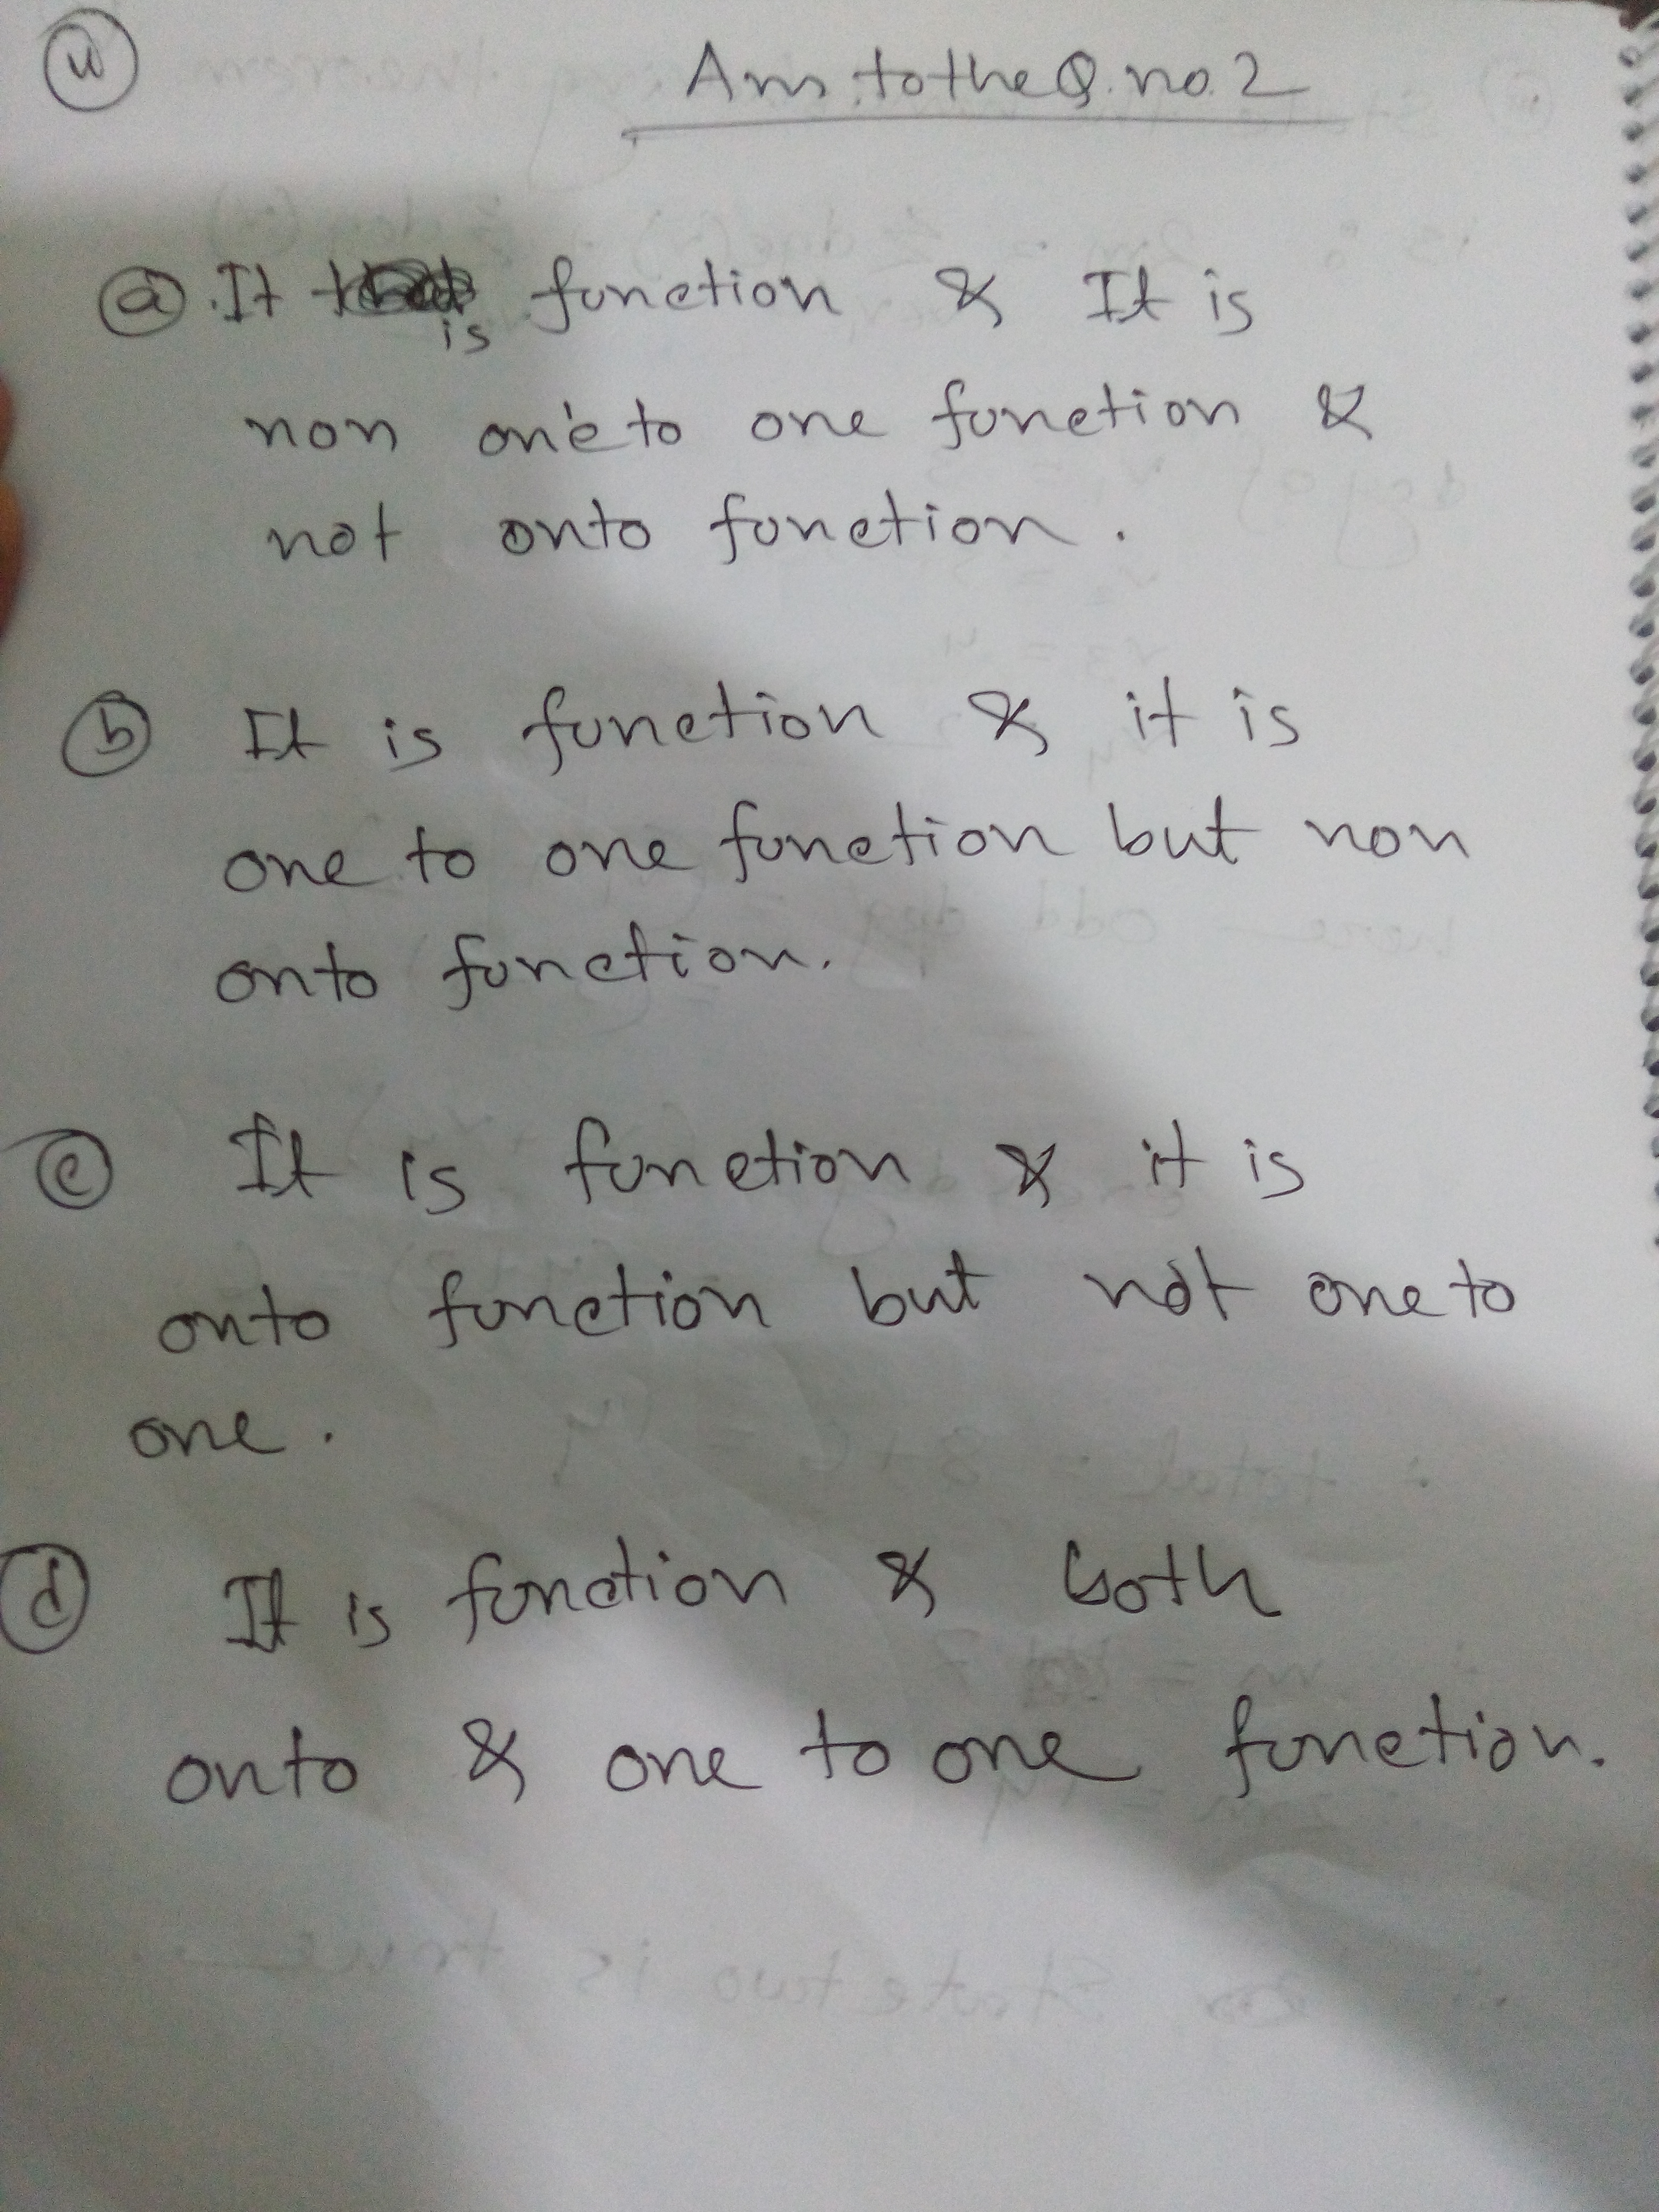 Ans. to the Q. no. 2
(a) It is function & It is
non one to one function &
not onto function.
(b) It is function & it is
one to one function but non
onto function.
(c) It is function & it is
onto function but not one to
one.
(d) It is function & both
onto & one to one function.